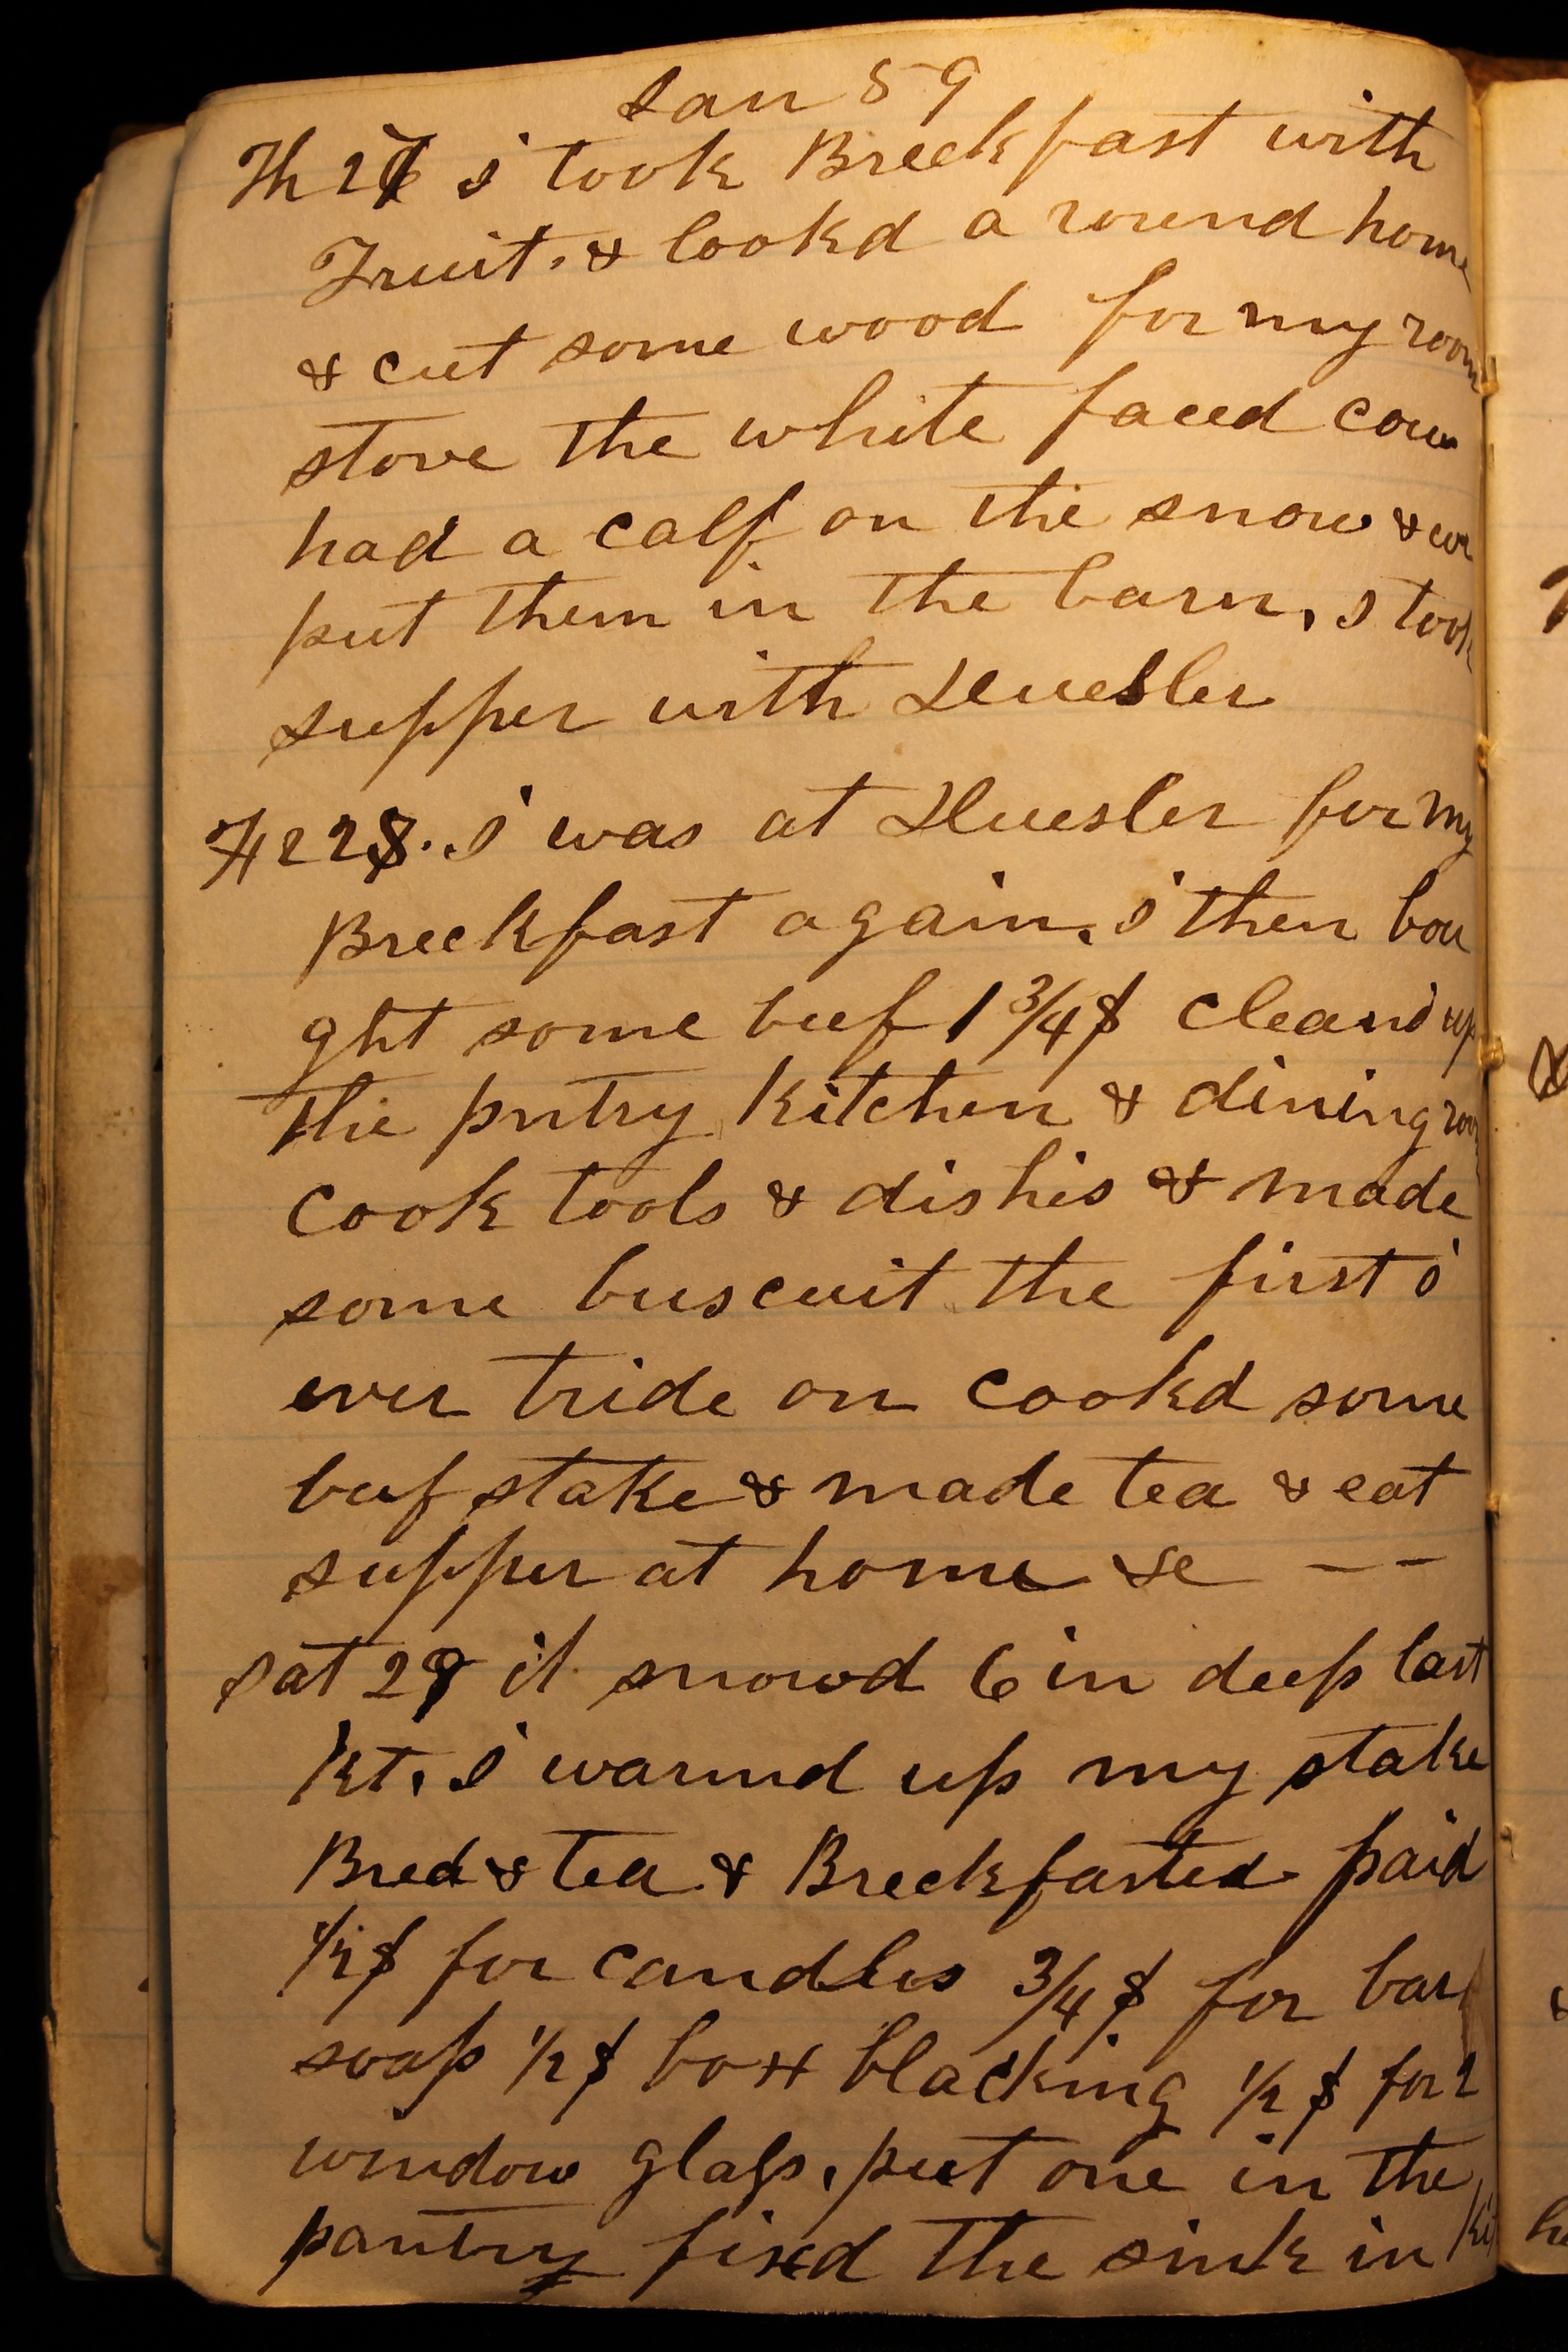 Jan 59
Th 27 i took Breckfast with
Fruit. & lookd a round home
& cut some wood for my room
stove the white faced cow
had a calf on the snow & we
put them in the barn, I took
supper with Huesler
Fr 28. I was at Huesler for my
Breckfast again. i then bou
ght some beef 1 3/4 $ cleand up
the pntry Kitchen & dining room
cook tools & dishis & made
some buscuit the first i
ever tride on cookd some
beef stake & made tea & eat
supper at home &c — —
Sat 29 it snowd 6 in deep last
nt. I warmd up my stake
Bred & tea & Breckfasted paid
1/2 $ for candles 3/4 $ for bar
soap 1/2 $ box blacking 1/2 $ for 2
window glass, put one in the
pantry fixd the sink in Kit